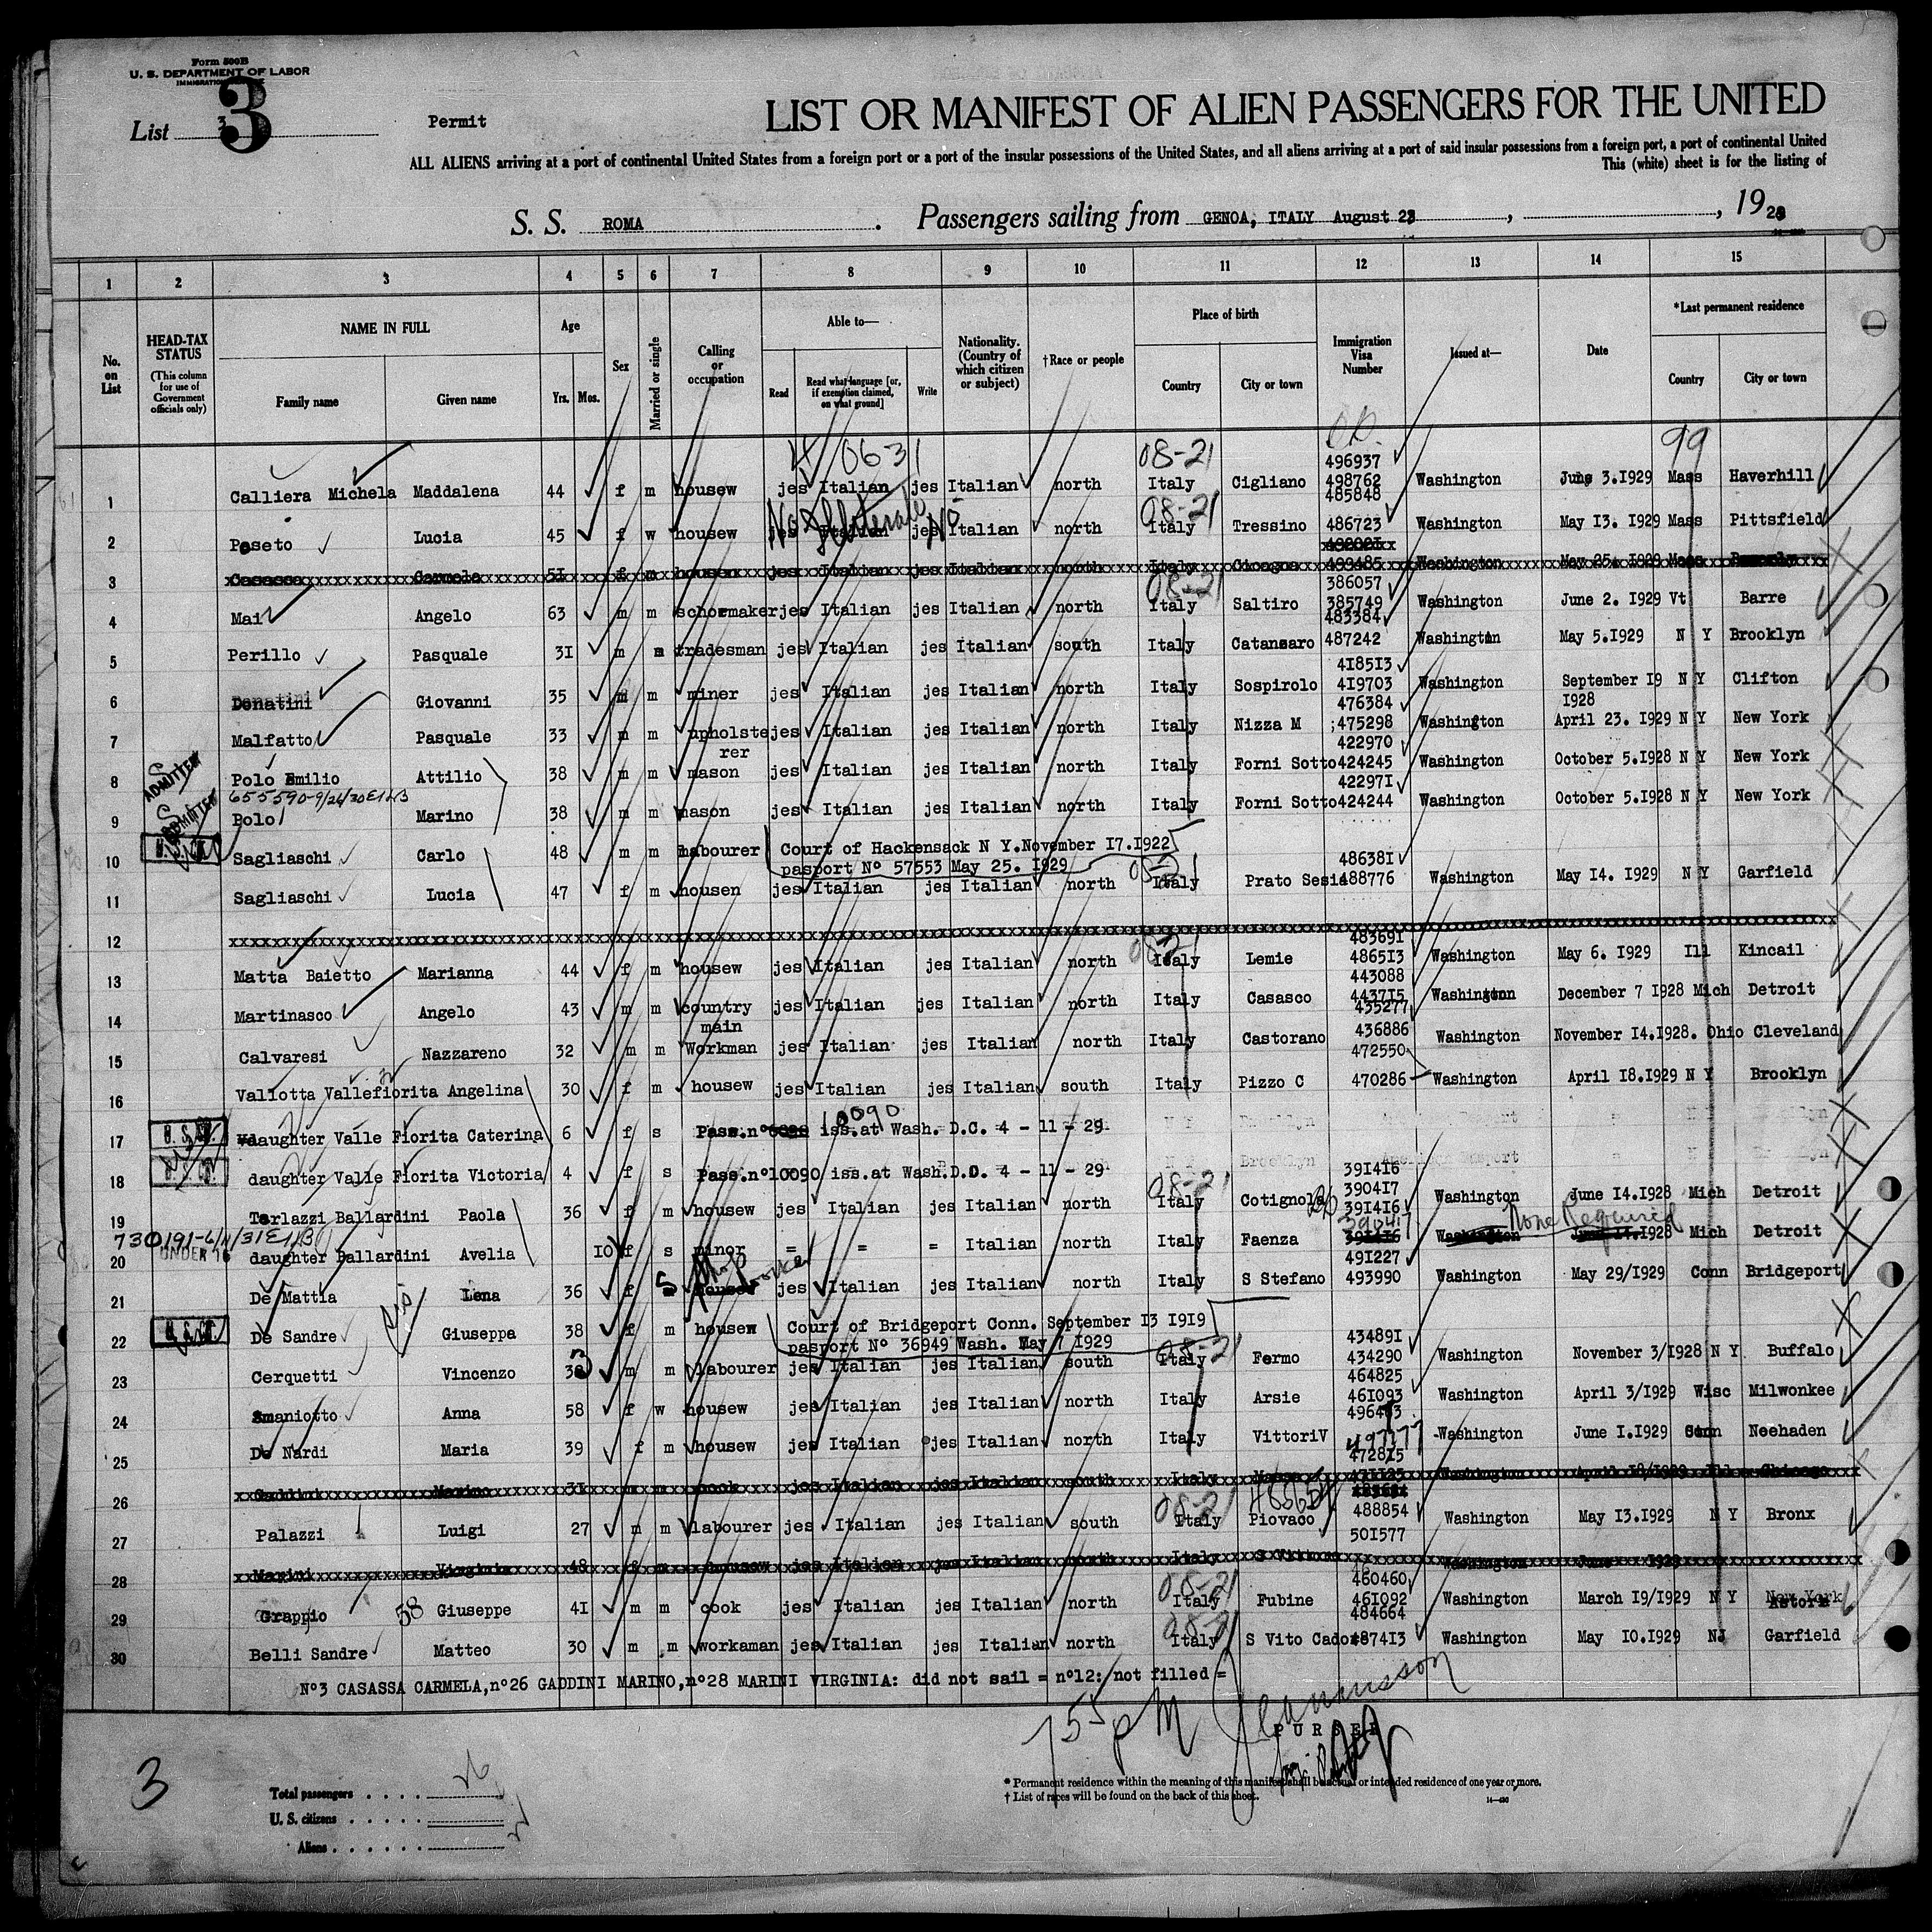 Form 500B
U. S. DEPARTMENT OF LABOR
List 3
3
Permit
LIST OR MANIFEST OF ALIEN PASSENGERS FOR THE UNITED
ALL ALIENS arriving at a port of continental United States from a foreign port or a port of the insular possessions of the United States, and all aliens arriving at a port of said insular possessions from a foreign port, a port of continental United
This (white) sheet is for the listing of
S. S. ROMA . Passengers sailing from GENOA, ITALY August 23 , , 19 29
1 2 3 4 5 6 7 8 9 10 11 12 13 14 15
No. on List
HEAD-TAX STATUS (This column for use of Government officials only)
NAME IN FULL Family name Given name
Age Yrs. Mos.
Sex
Married or single
Calling or occupation
Able to— Read Read what language [or, if exemption claimed, on what ground] Write
Nationality. (Country of which citizen or subject)
†Race or people
Place of birth Country City or town
Immigration Visa Number
Issued at—
Date
*Last permanent residence Country City or town
0631 08-21 99
1 Calliera Michela Maddalena 44 f m housew jes Italian jes Italian north Italy Cigliano 496937 498762 485848 Washington June 3.1929 Mass Haverhill
08-21
2 Poseto Lucia 45 f w housew jes Italian jes Italian north Italy Tressino 486723 Washington May 13. 1929 Mass Pittsfield
No Illiterate No
3 Casassa Carmela 51 f m housew jes Italian jes Italian north Italy Cicagna 499485 Washington May 25. 1929 Mass
08-21
4 Mai Angelo 63 m m schoemaker jes Italian jes Italian north Italy Saltiro 386057 385749 483384 Washington June 2. 1929 Vt Barre
5 Perillo Pasquale 31 m m tradesman jes Italian jes Italian south Italy Catanzaro 487242 Washington May 5.1929 N Y Brooklyn
6 Donatini Giovanni 35 m m miner jes Italian jes Italian north Italy Sospirolo 418513 419703 476384 Washington September 19 1928 N Y Clifton
7 Malfatto Pasquale 33 m m upholsterer jes Italian jes Italian north Italy Nizza M 475298 Washington April 23. 1929 N Y New York
ADMITTED
8 Polo Emilio Attilio 38 m m mason jes Italian jes Italian north Italy Forni Sotto 422970 424245 Washington October 5.1928 N Y New York
655590-9/26/30
ADMITTED
9 Polo Marino 38 m m mason jes Italian jes Italian north Italy Forni Sotto 422971 424244 Washington October 5.1928 N Y New York
U. S. Cit.
10 Sagliaschi Carlo 48 m m labourer Court of Hackensack N Y.November 17.1922
pasport Nº 57553 May 25. 1929
08-21
11 Sagliaschi Lucia 47 f m housen jes Italian jes Italian north Italy Prato Sesia 486381 488776 Washington May 14. 1929 N Y Garfield
12 xxxxxxxxxxxxxxxxxxxxxxxx
08-21
13 Matta Baietto Marianna 44 f m housew jes Italian jes Italian north Italy Lemie 483691 486513 Washington May 6. 1929 Ill Kincail
14 Martinasco Angelo 43 m m country main jes Italian jes Italian north Italy Casasco 443088 443715 Washington December 7 1928 Mich Detroit
15 Calvaresi Nazzareno 32 m m Workman jes Italian jes Italian north Italy Castorano 435277 436886 Washington November 14.1928. Ohio Cleveland
16 Valiotta Vallefiorita Angelina 30 f m housew jes Italian jes Italian south Italy Pizzo C 472550 470286 Washington April 18.1929 N Y Brooklyn
10090
17 daughter Valle Fiorita Caterina 6 f s Pass.nº iss.at Wash. D.C. 4 - 11 - 29
18 daughter Valle Fiorita Victoria 4 f s Pass.nº10090 iss.at Wash.D.C. 4 - 11 - 29
08-21
19 Terlazzi Ballardini Paola 36 f m housew jes Italian jes Italian north Italy Cotignola 391416 390417 391416 Washington June 14.1928 Mich Detroit
730191-6/11/31
UNDER 16
20 daughter Ballardini Avelia 10 f s minor = = = Italian north Italy Faenza 390417 391416 Washington June 14.1928 Mich Detroit
None Required
21 De Mattia Lena 36 f s housew jes Italian jes Italian north Italy S Stefano 491227 493990 Washington May 29/1929 Conn Bridgeport
22 De Sandre Giuseppa 38 f m housew Court of Bridgeport Conn. September 13 1919
pasport Nº 36949 Wash. May 7 1929
08-21
23 Cerquetti Vincenzo 38 m m labourer jes Italian jes Italian south Italy Fermo 434891 434290 Washington November 3/1928 N Y. Buffalo
24 Smaniotto Anna 58 f w housew jes Italian jes Italian north Italy Arsie 464825 461093 Washington April 3/1929 Wisc Milwonkee
25 De Nardi Maria 39 f m housew jes Italian jes Italian north Italy VittoriV 497777 Washington June 1.1929 Conn Neehaden
26 Gaddini Marino 31 m m cook jes Italian jes Italian south Italy 472815 Washington April 18/1929 Ill Chicago
08-21
27 Palazzi Luigi 27 m m labourer jes Italian jes Italian south Italy Piovaco 488854 Washington May 13.1929 N Y Bronx
501577
28 Marini Virginia 48 f m housew jes Italian jes Italian north Italy Washington June 1929
08-21
29 Grappio 58 Giuseppe 41 m m cook jes Italian jes Italian north Italy Fubine 460460 461092 Washington March 19/1929 N Y Astoria
08-21
30 Belli Sandre Matteo 30 m m workaman jes Italian jes Italian north Italy S Vito Cadore 484664 487413 Washington May 10.1929 NJ Garfield
Nº3 CASASSA CARMELA,nº26 GADDINI MARINO,nº28 MARINI VIRGINIA: did not sail = nº12: not filled =
755 PM
PURSER
3
Total passengers
U. S. citizens
Aliens
* Permanent residence within the meaning of this manifest shall be actual or intended residence of one year or more.
† List of races will be found on the back of this sheet.